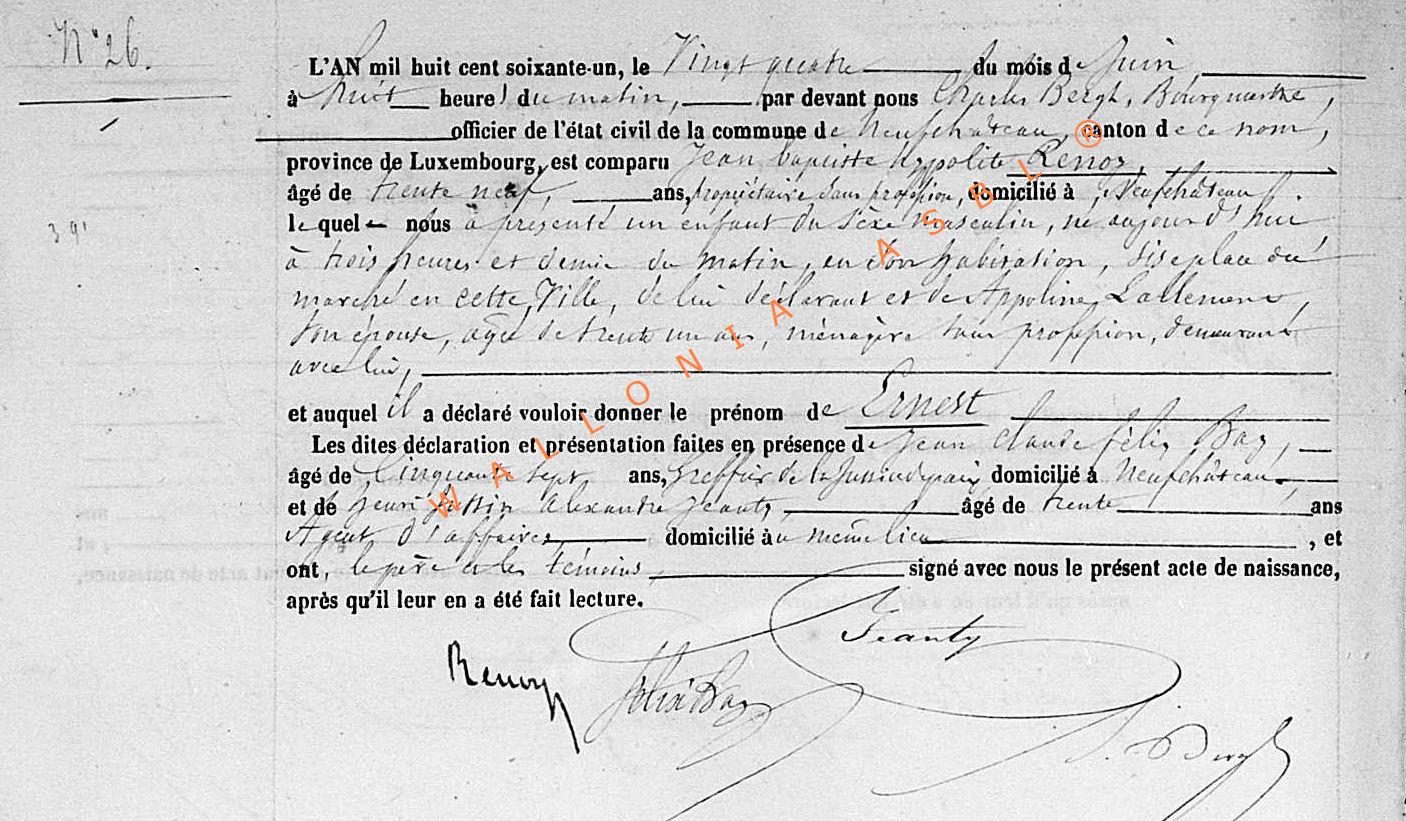 N° 26.
L'AN mil huit cent soixante-un, le Vingt quatre du mois de Juin
à huit heures du matin, par devant nous Charles Bergh, Bourgmestre,
officier de l'état civil de la commune de Neufchâteau, canton de ce nom,
province de Luxembourg, est comparu Jean Baptiste Hyppolite Renoz,
âgé de trente neuf, ans, propriétaire sans profession, domicilié à Neufchâteau.
lequel nous a présenté un enfant du sèxe masculin, né aujourd'hui
à trois heures et demie du matin, en son habitation, sise place du
marché en cette Ville, de lui déclarant et de Appoline Lallemand,
son épouse, agée de trente un ans, ménagère sans profession, demeurant
avec lui,
et auquel il a déclaré vouloir donner le prénom de Ernest
Les dites déclaration et présentation faites en présence de Jean Claude félix Bay,
âgé de Cinquante sept ans, Greffier de la Justice de paix domicilié à Neufchâteau,
et de henri Justin Alexandre Jeanty, âgé de trente ans
Agent d'affaires, domicilié au même lieu, et
ont, le père et les témoins, signé avec nous le présent acte de naissance,
après qu'il leur en a été fait lecture.
Jeanty
Renoz
félix Bay
Bergh
WALLONIA ASBL ®